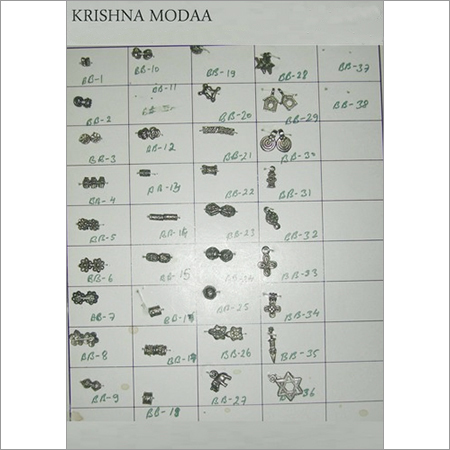 KRISHNA MODAA
BB-1
BB-2
BB-3
BB-4
BB-5
BB-6
BB-7
BB-8
BB-9
BB-10
BB-11
BB-12
BB-13
BB-14
BB-15
BB-16
BB-17
BB-18
BB-19
BB-20
BB-21
BB-22
BB-23
BB-25
BB-26
BB-27
BB-28
BB-29
BB-30
BB-31
BB-32
BB-33
BB-34
BB-35
36
BB-37
BB-38